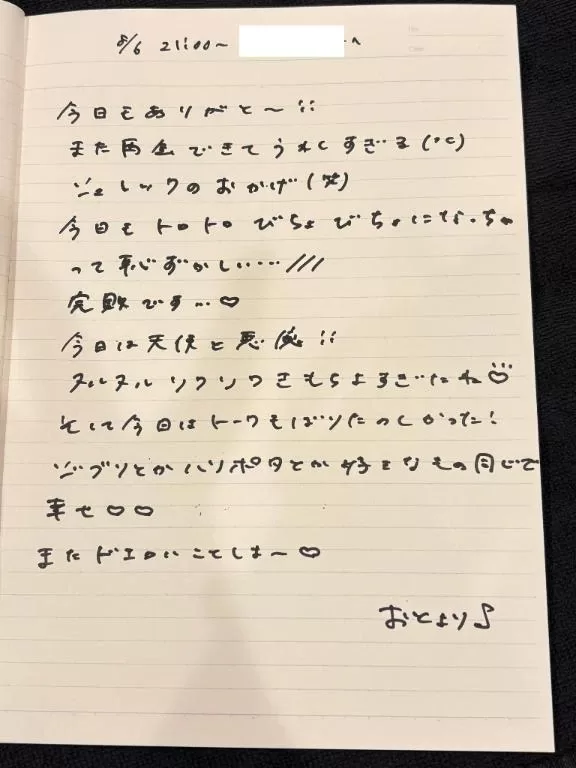 8/6 21:00〜 へ
今日もありがと〜!!
また再会できてうれしすぎる(°C)
シュレックのおかげ(笑)
今日もトロトロびちょびちょになっちゃ
って恥ずかしい……///
完敗です…♡
今日は天使と悪魔!!
ヌルヌルソワソワきもちよすぎたね♡
そして今日はトークもばりたのしかった!
ジブリとかハリポタとか好きなもの同じで
幸せ♡♡
またドエロいことしよ〜♡
おとより♪